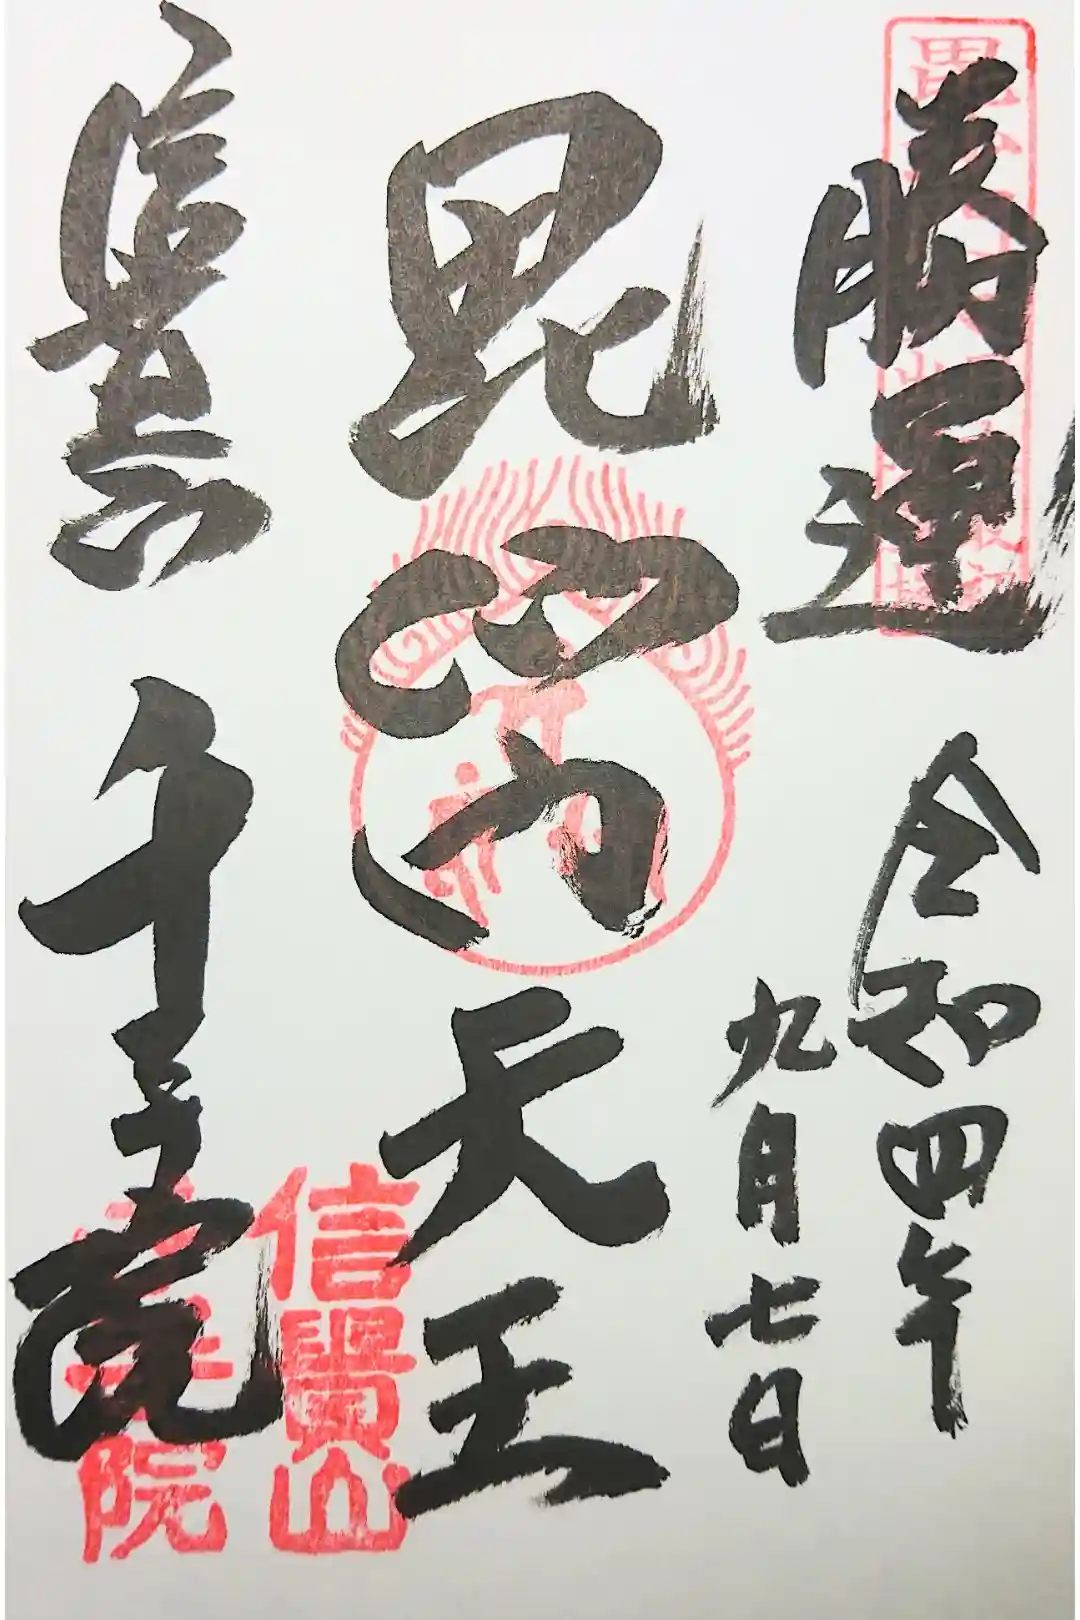 勝運
令和四年
九月七日
毘沙門天王
信貴山
千手院
信貴山
千手院